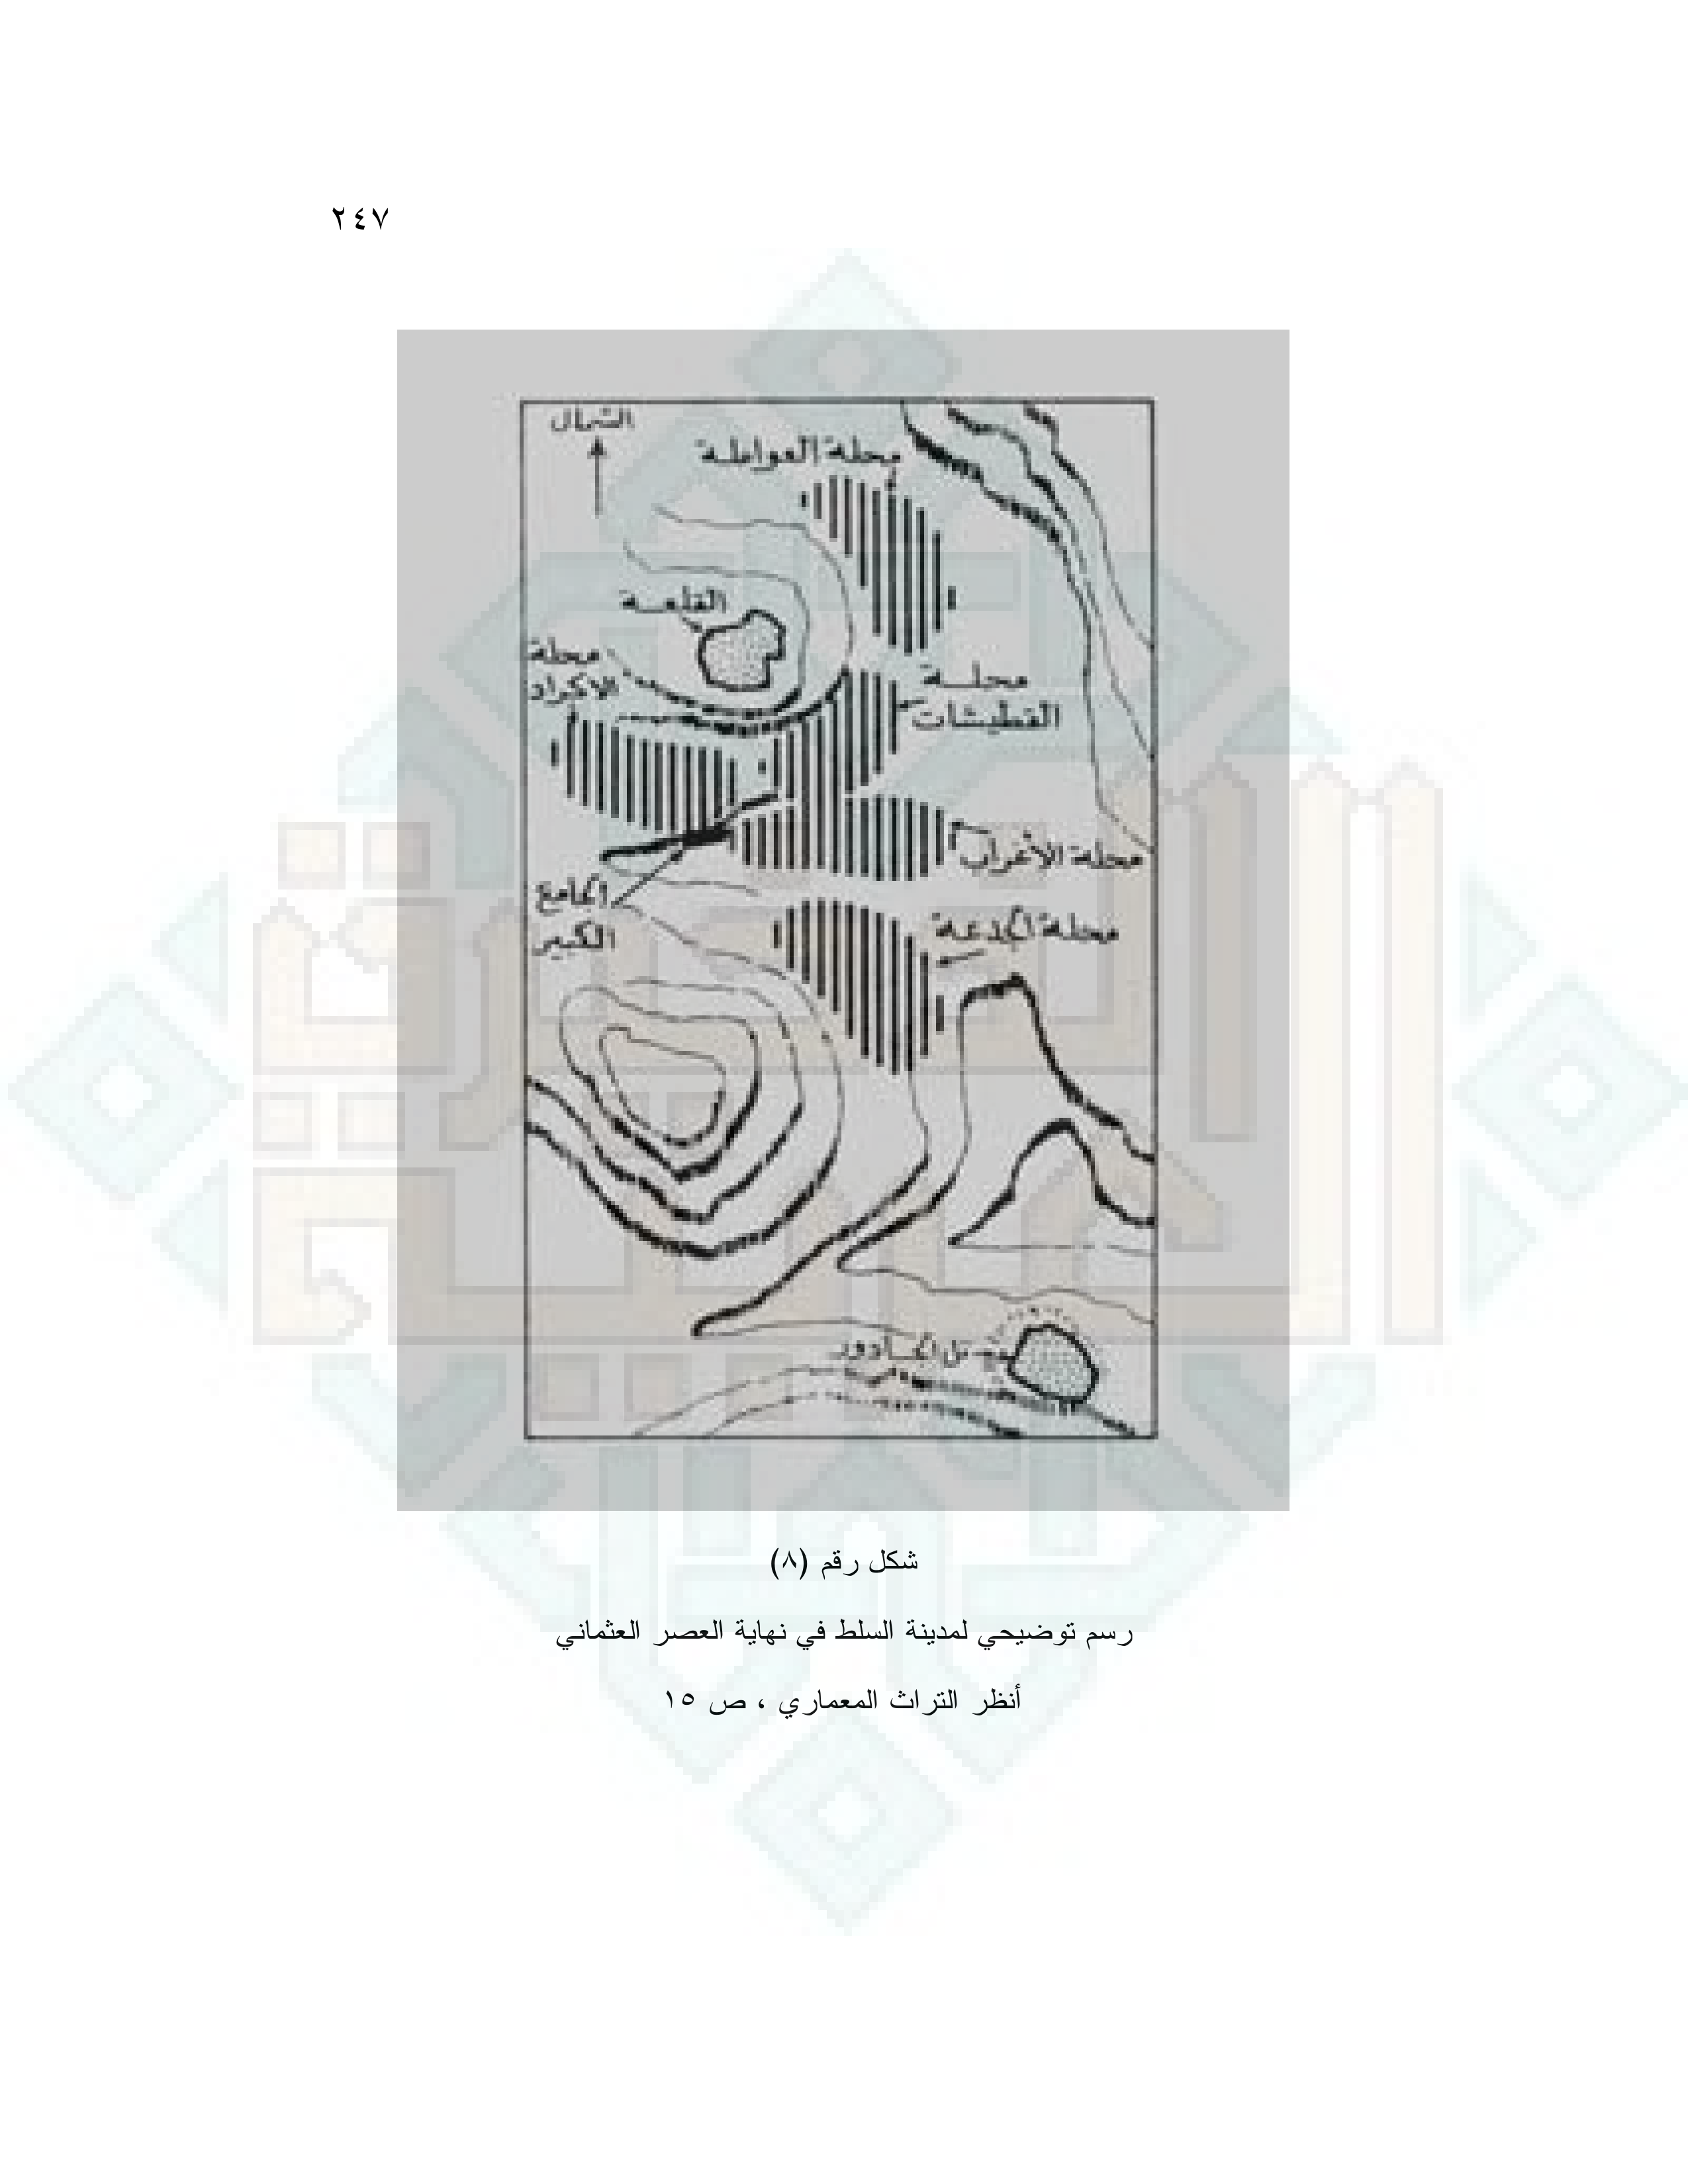 ٢٤٧
الشمال
محلة العواملة
القلعة
محلة
الاكراد
محلة
القطيشات
محلة الأغراب
الجامع
الكبير
محلة الجدعة
تل الجادور
شكل رقم (٨)
رسم توضيحي لمدينة السلط في نهاية العصر العثماني
أنظر التراث المعماري ، ص ١٥